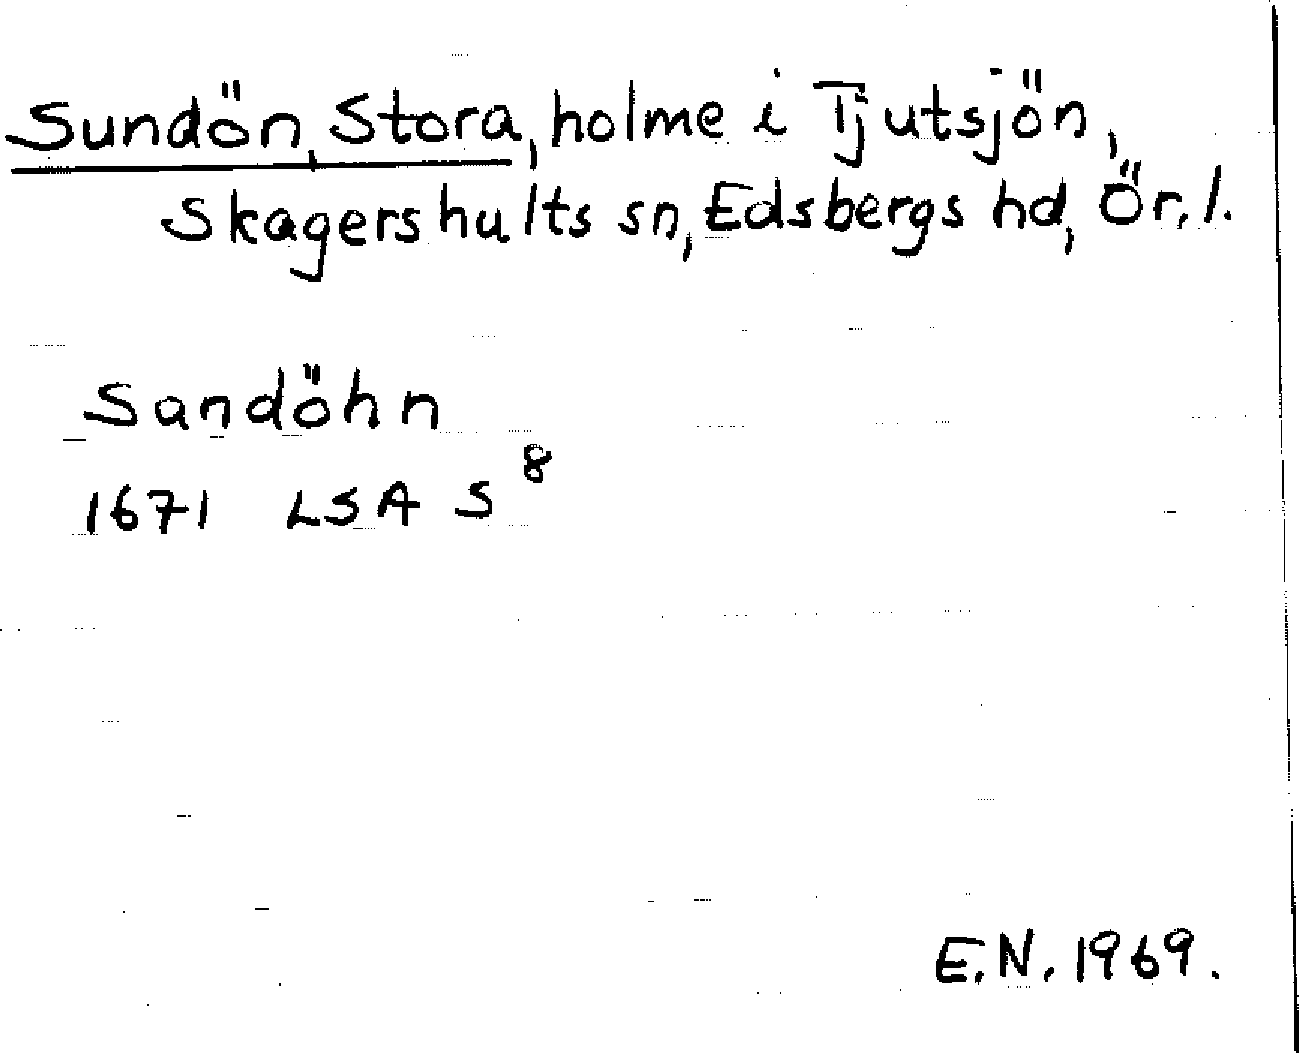 Sundön, Stora, holme i Tjutsjön,
Skagershults sn, Edsbergs hd, Ör. l.
Sandöhn
1671 LSA S 8
E.N. 1969.